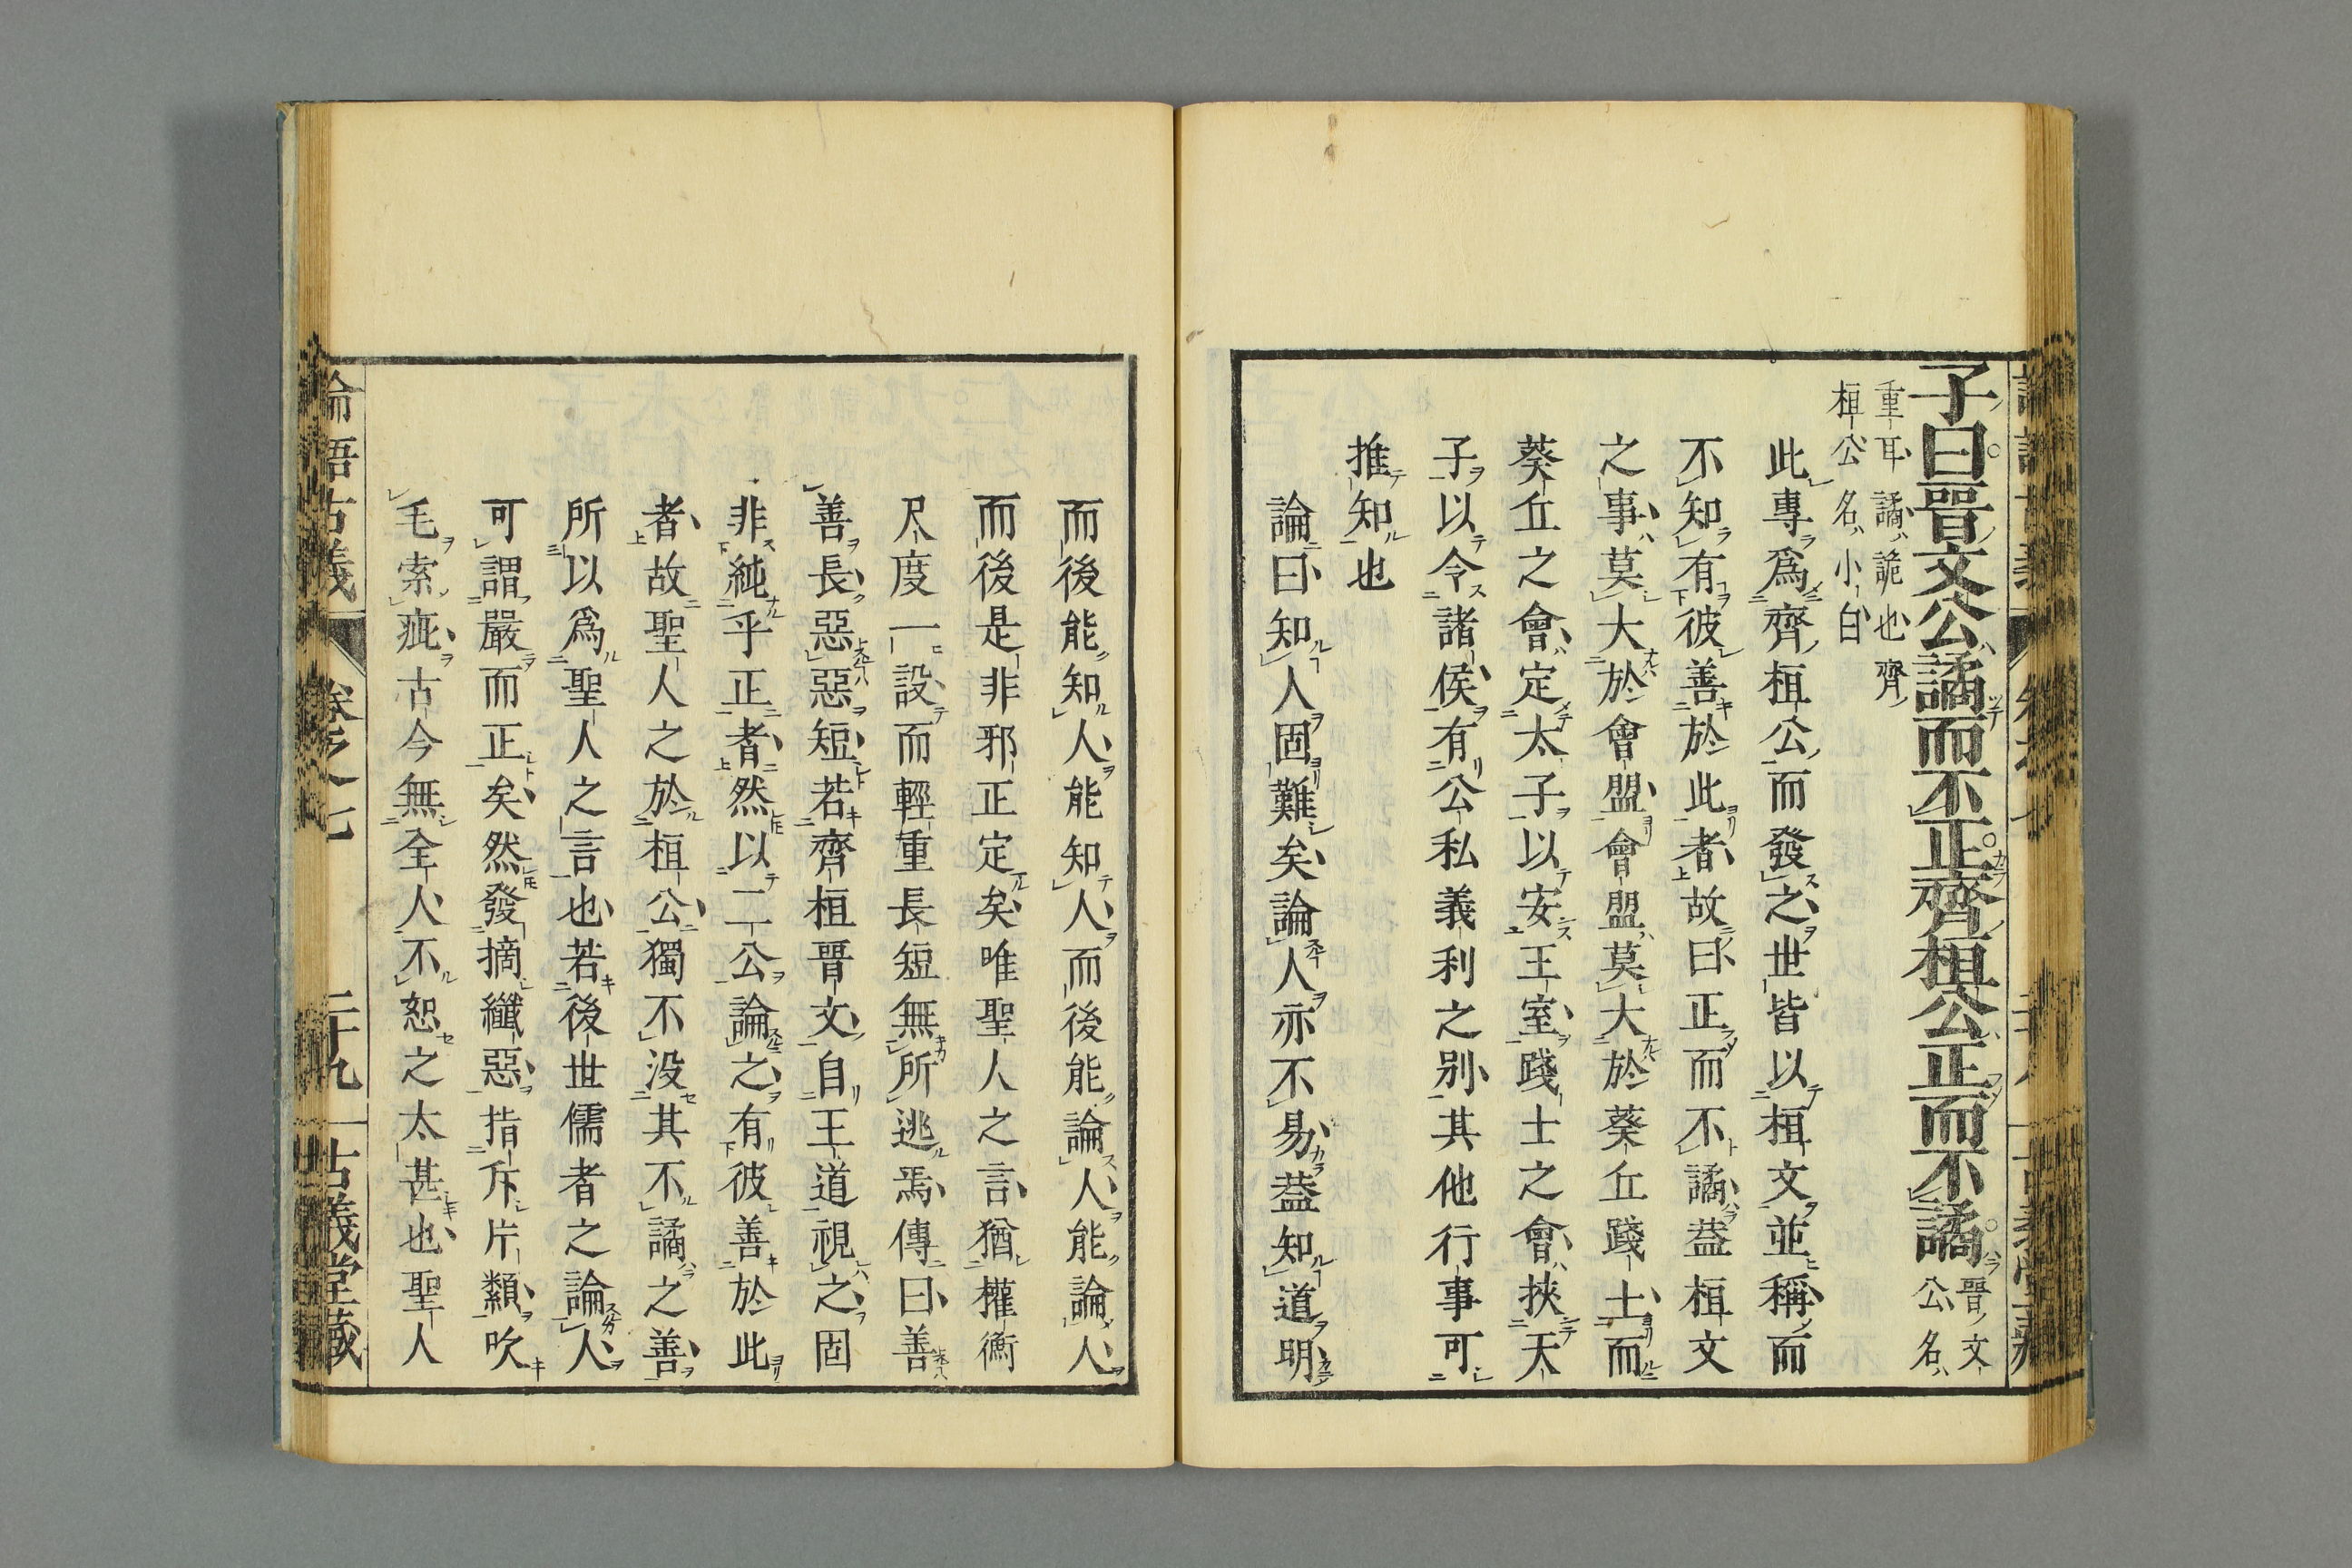 子曰晉文公譎而不正齊桓公正而不譎
晉文公名
重耳譎詭也齊
桓公名小白
此專爲齊桓公而發之世皆以桓文並稱而
不知有彼善於此者故曰正而不譎葢桓文
之事莫大於會盟會盟莫大於葵丘踐土而
葵丘之會定太子以安王室踐土之會挾天
子以令諸侯有公私義利之别其他行事可
推知也
論曰知人固難矣論人亦不易葢知道明
而後能知人能知人而後能論人能論人
而後是非邪正定矣唯聖人之言猶權衡
尺度一設而輕重長短無所逃焉傳曰善
善長惡惡短若齊桓晉文自王道視之固
非純乎正者然以二公論之有彼善於此
者故聖人之於桓公獨不没其不譎之善
所以爲聖人之言也若後世儒者之論人
可謂嚴而正矣然發摘纖惡指斥片纇吹
毛索疵古今無全人不恕之太甚也聖人
論語古義 卷之七 二十九 古義堂藏